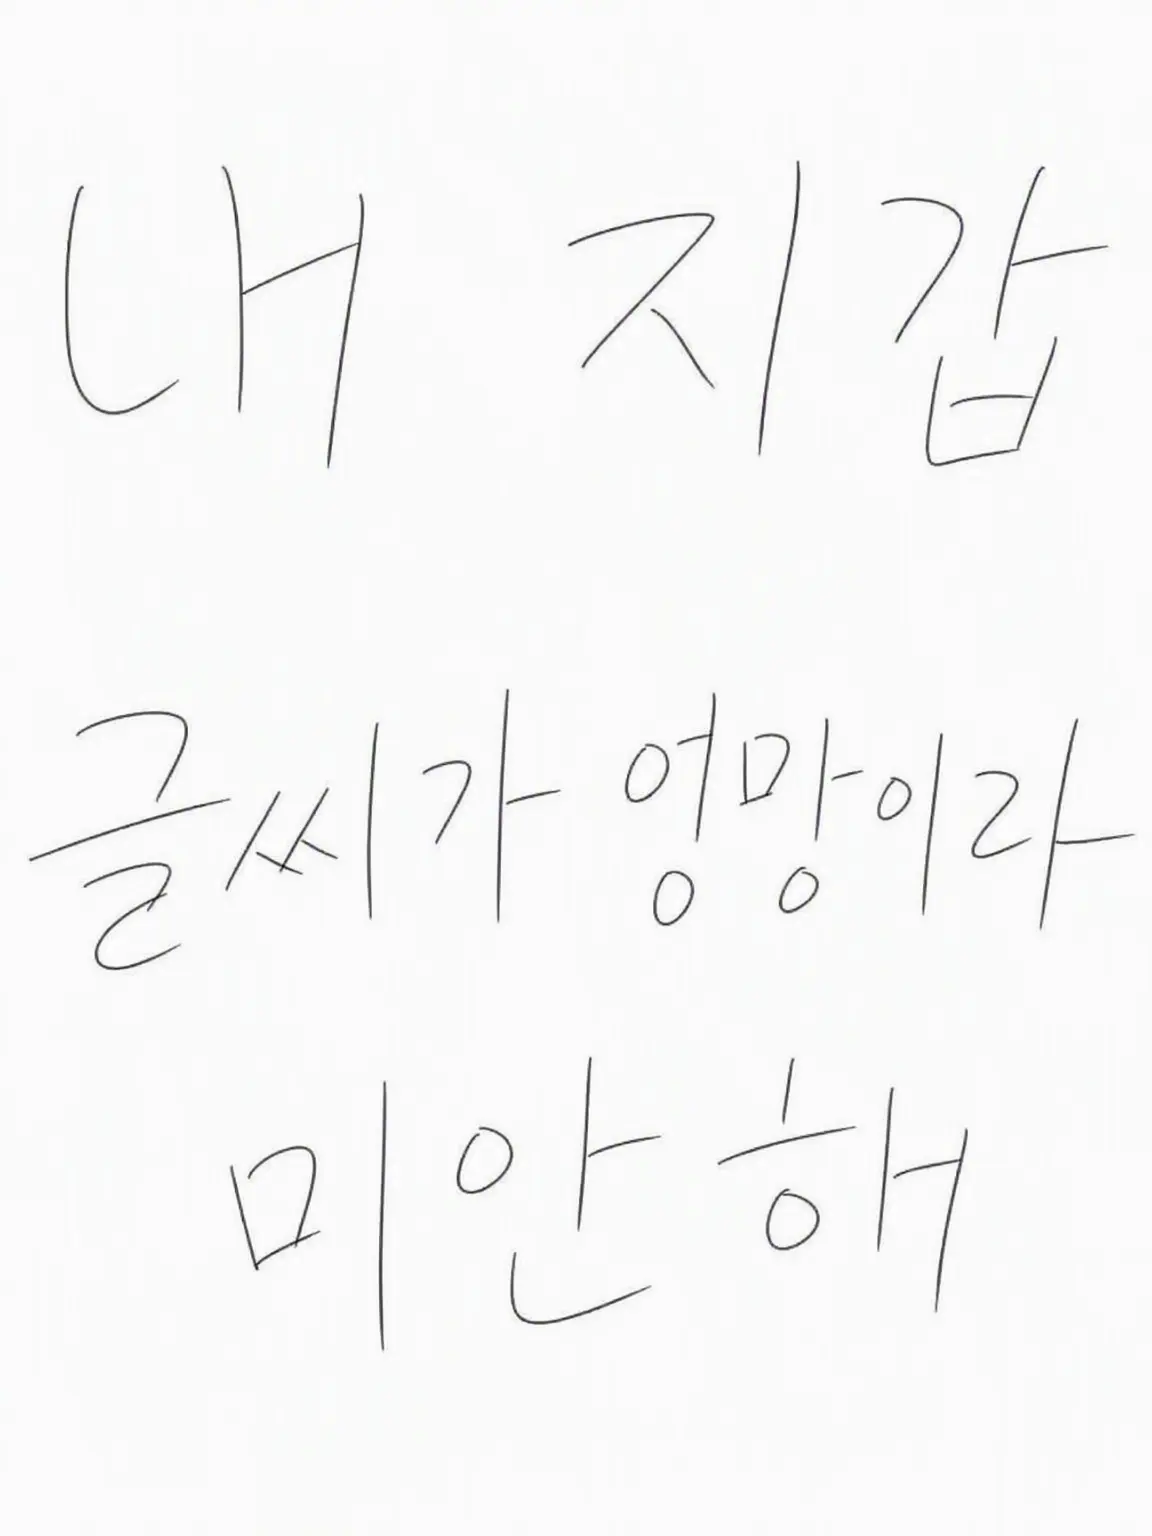 내 지갑
글씨가 엉망이라
미안해